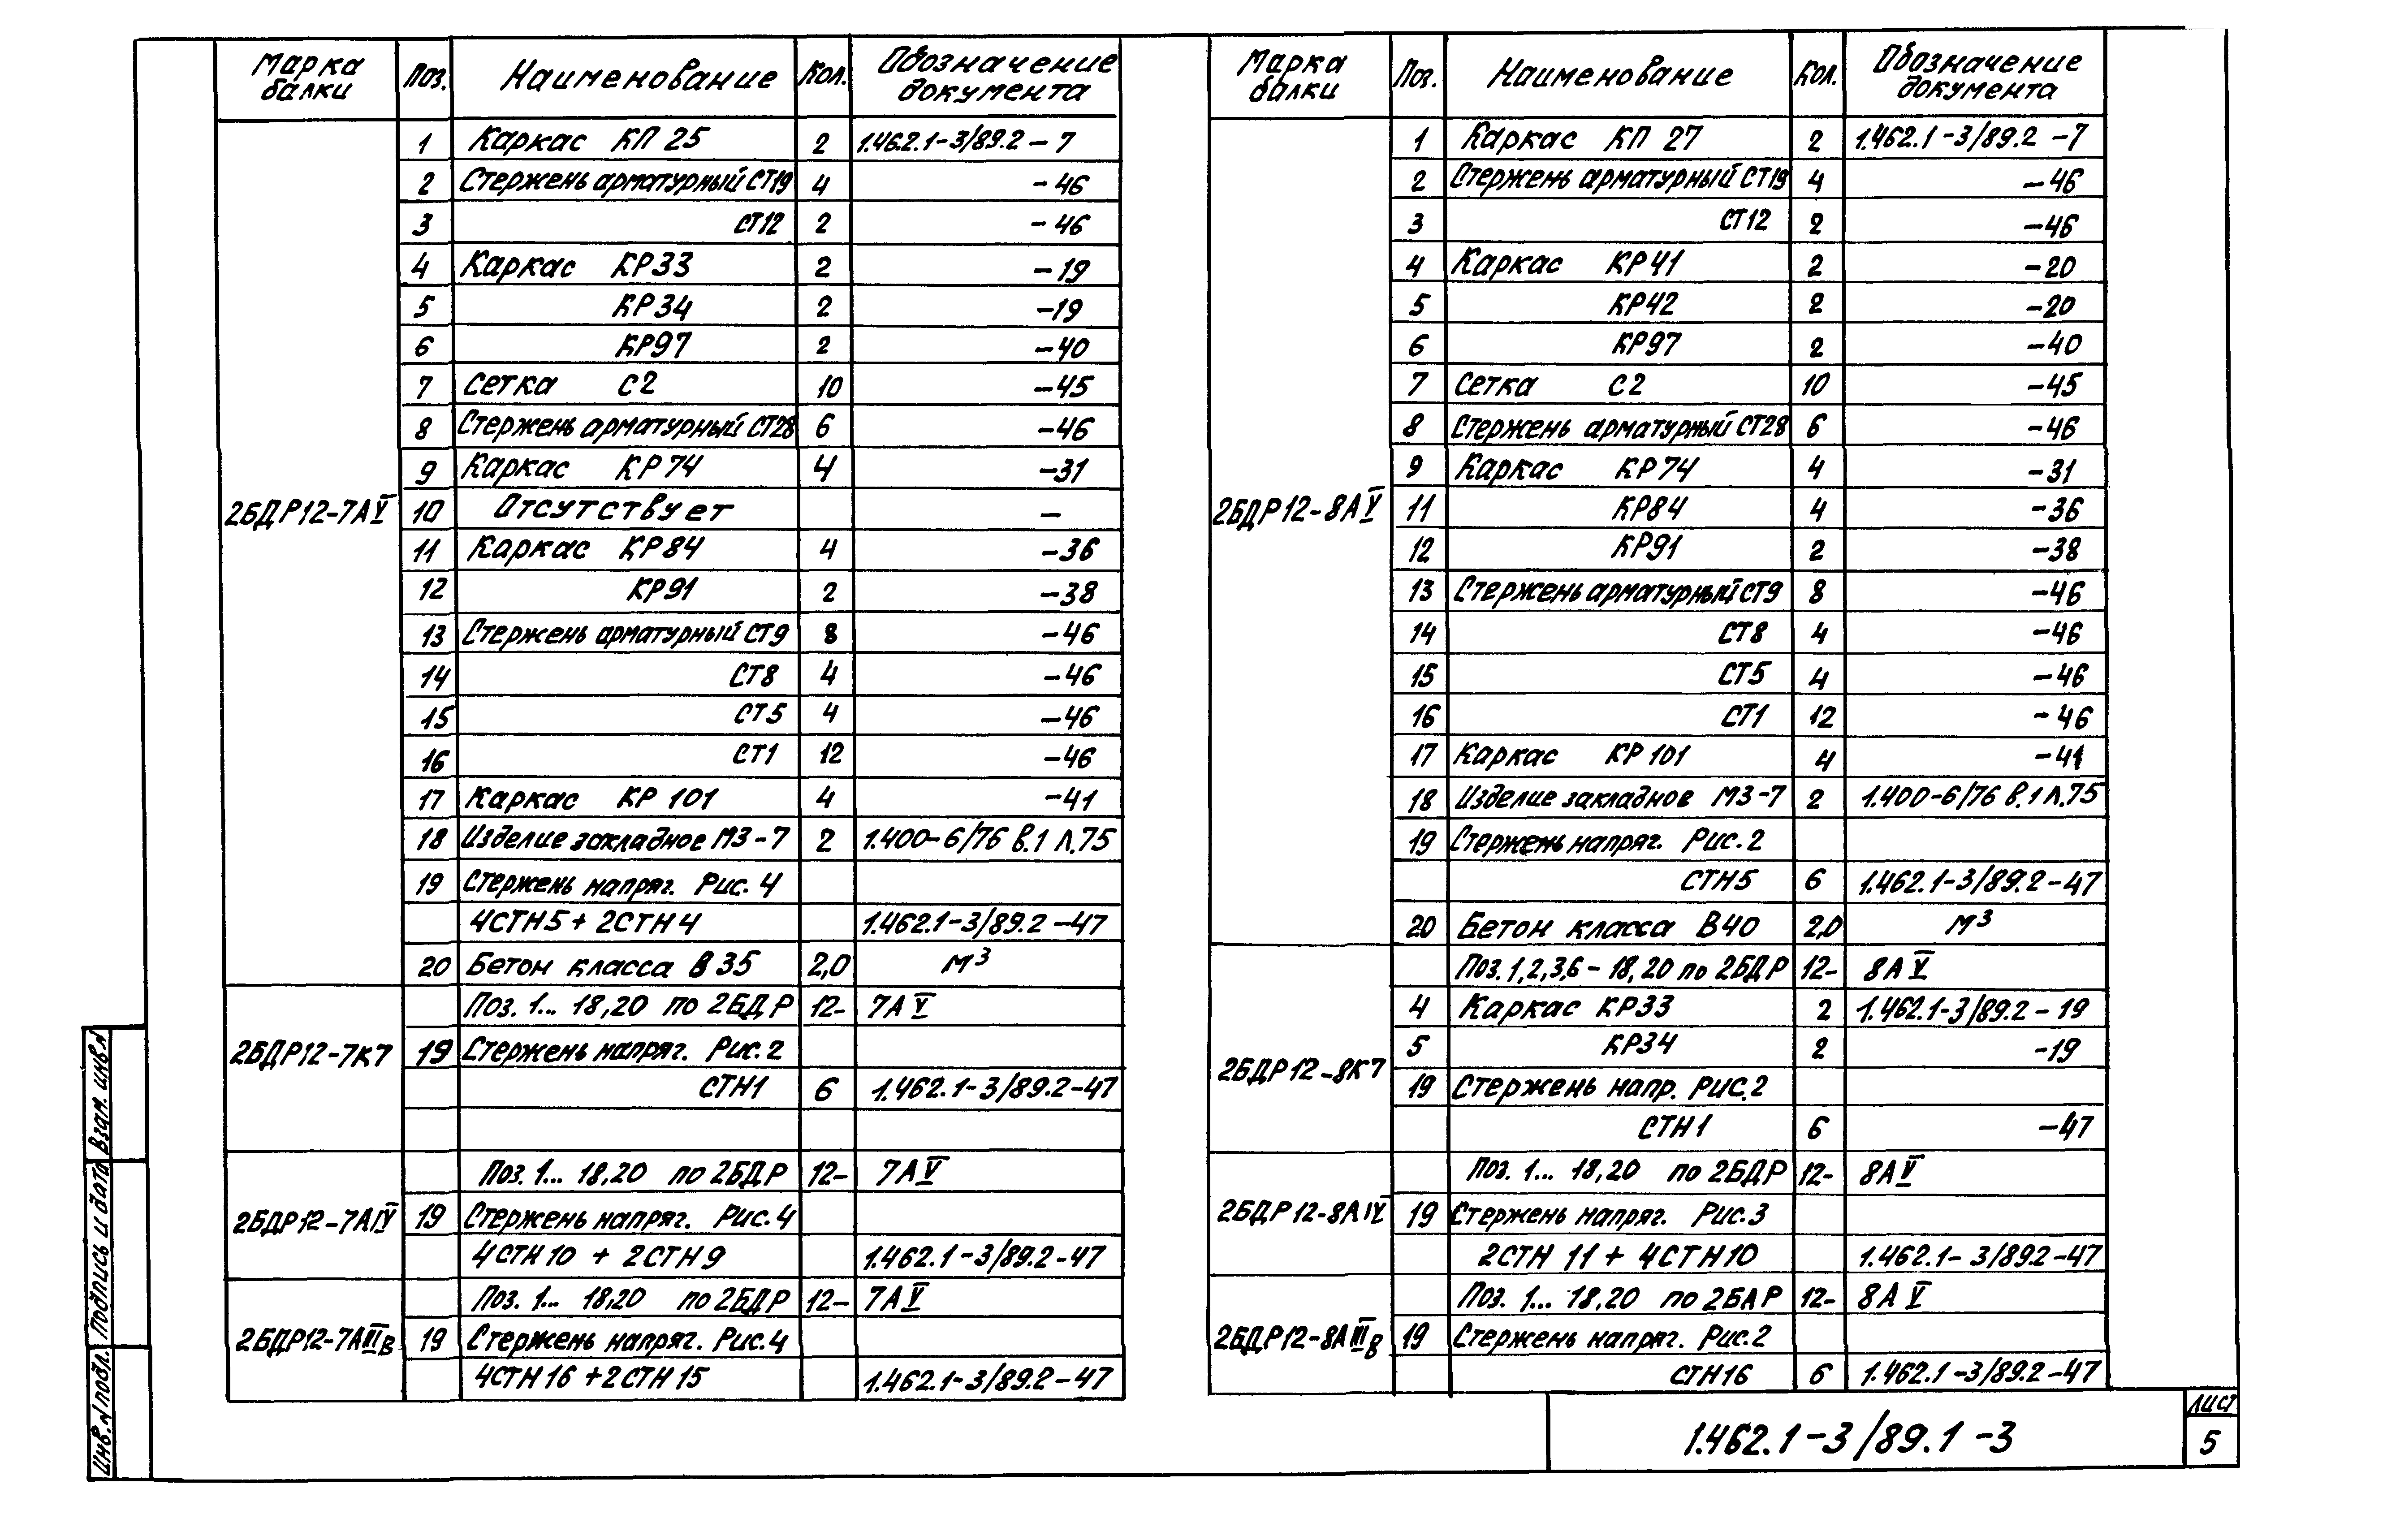 Марка балки Поз. Наименование Кол. Обозначение документа
2БДР12-7АV
1 Каркас КП 25 2 1.462.1-3/89.2-7
2 Стержень арматурный СТ19 4 -46
3 СТ12 2 -46
4 Каркас КР33 2 -19
5 КР34 2 -19
6 КР97 2 -40
7 Сетка С2 10 -45
8 Стержень арматурный СТ28 6 -46
9 Каркас КР74 4 -31
10 Отсутствует -
11 Каркас КР84 4 -36
12 КР91 2 -38
13 Стержень арматурный СТ9 8 -46
14 СТ8 4 -46
15 СТ5 4 -46
16 СТ1 12 -46
17 Каркас КР 101 4 -41
18 Изделие закладное МЗ-7 2 1.400-6/76 в.1 л.75
19 Стержень напряг. Рис. 4
4СТН5 + 2СТН4 1.462.1-3/89.2-47
20 Бетон класса В35 2,0 м³
2БДР12-7К7
Поз. 1... 18,20 по 2БДР 12- 7АV
19 Стержень напряг. Рис. 2
СТН1 6 1.462.1-3/89.2-47
2БДР12-7АIV
Поз. 1... 18,20 по 2БДР 12- 7АV
19 Стержень напряг. Рис. 4
4СТН10 + 2СТН9 1.462.1-3/89.2-47
2БДР12-7АIIIв
Поз. 1... 18,20 по 2БДР 12- 7АV
19 Стержень напряг. Рис. 4
4СТН16 + 2СТН15 1.462.1-3/89.2-47
Марка балки Поз. Наименование Кол. Обозначение документа
2БДР12-8АV
1 Каркас КП 27 2 1.462.1-3/89.2-7
2 Стержень арматурный СТ19 4 -46
3 СТ12 2 -46
4 Каркас КР41 2 -20
5 КР42 2 -20
6 КР97 2 -40
7 Сетка С2 10 -45
8 Стержень арматурный СТ28 6 -46
9 Каркас КР74 4 -31
11 КР84 4 -36
12 КР91 2 -38
13 Стержень арматурный СТ9 8 -46
14 СТ8 4 -46
15 СТ5 4 -46
16 СТ1 12 -46
17 Каркас КР 101 4 -41
18 Изделие закладное МЗ-7 2 1.400-6/76 в.1 л.75
19 Стержень напряг. Рис. 2
СТН5 6 1.462.1-3/89.2-47
20 Бетон класса В40 2,0 м³
2БДР12-8К7
Поз. 1,2,3,6-18,20 по 2БДР 12- 8АV
4 Каркас КР33 2 1.462.1-3/89.2-19
5 КР34 2 -19
19 Стержень напр. Рис. 2
СТН1 6 -47
2БДР12-8АIV
Поз. 1... 18,20 по 2БДР 12- 8АV
19 Стержень напряг. Рис. 3
2СТН 11 + 4СТН10 1.462.1-3/89.2-47
2БДР12-8АIIIв
Поз. 1... 18,20 по 2БАР 12- 8АV
19 Стержень напряг. Рис. 2
СТН16 6 1.462.1-3/89.2-47
Инв. N подл. Подпись и дата Взам. инв. N
1.462.1-3/89.1-3
Лист
5